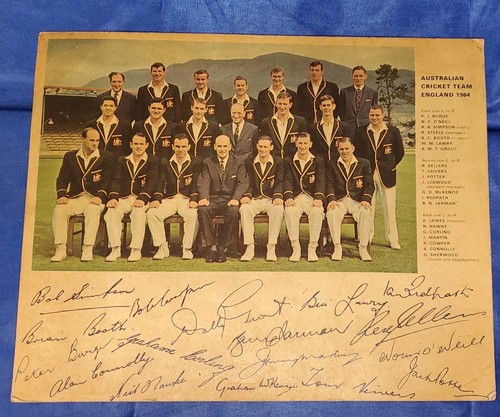 AUSTRALIAN
CRICKET TEAM
ENGLAND 1964
Front row L. to R.
P. J. BURGE
N. C. O'NEILL
R. B. SIMPSON (capt.)
R. STEELE
B. C. BOOTH
W. M. LAWRY
A. W. T. GROUT
Second row L. to R.
R. SELLERS
T. VEIVERS
J. POTTER
J. LEDWARD
(assistant manager)
G. D. McKENZIE
I. REDPATH
B. N. JARMAN
Back row L. to R.
A. JAMES
N. HAWKE
G. CORLING
J. MARTIN
R. COWPER
A. CONNOLLY
D. SHERWOOD
(scorer and baggageman)
Bob Simpson
Brian Booth Bob Cowper Wally Grout Bill Lawry Ian Redpath
Peter Burge Graham Corling Barry Jarman Rex Sellers
Alan Connolly Johnny Martin Norm O'Neill
Neil Hawke Graham McKenzie Tom Veivers Jack Potter